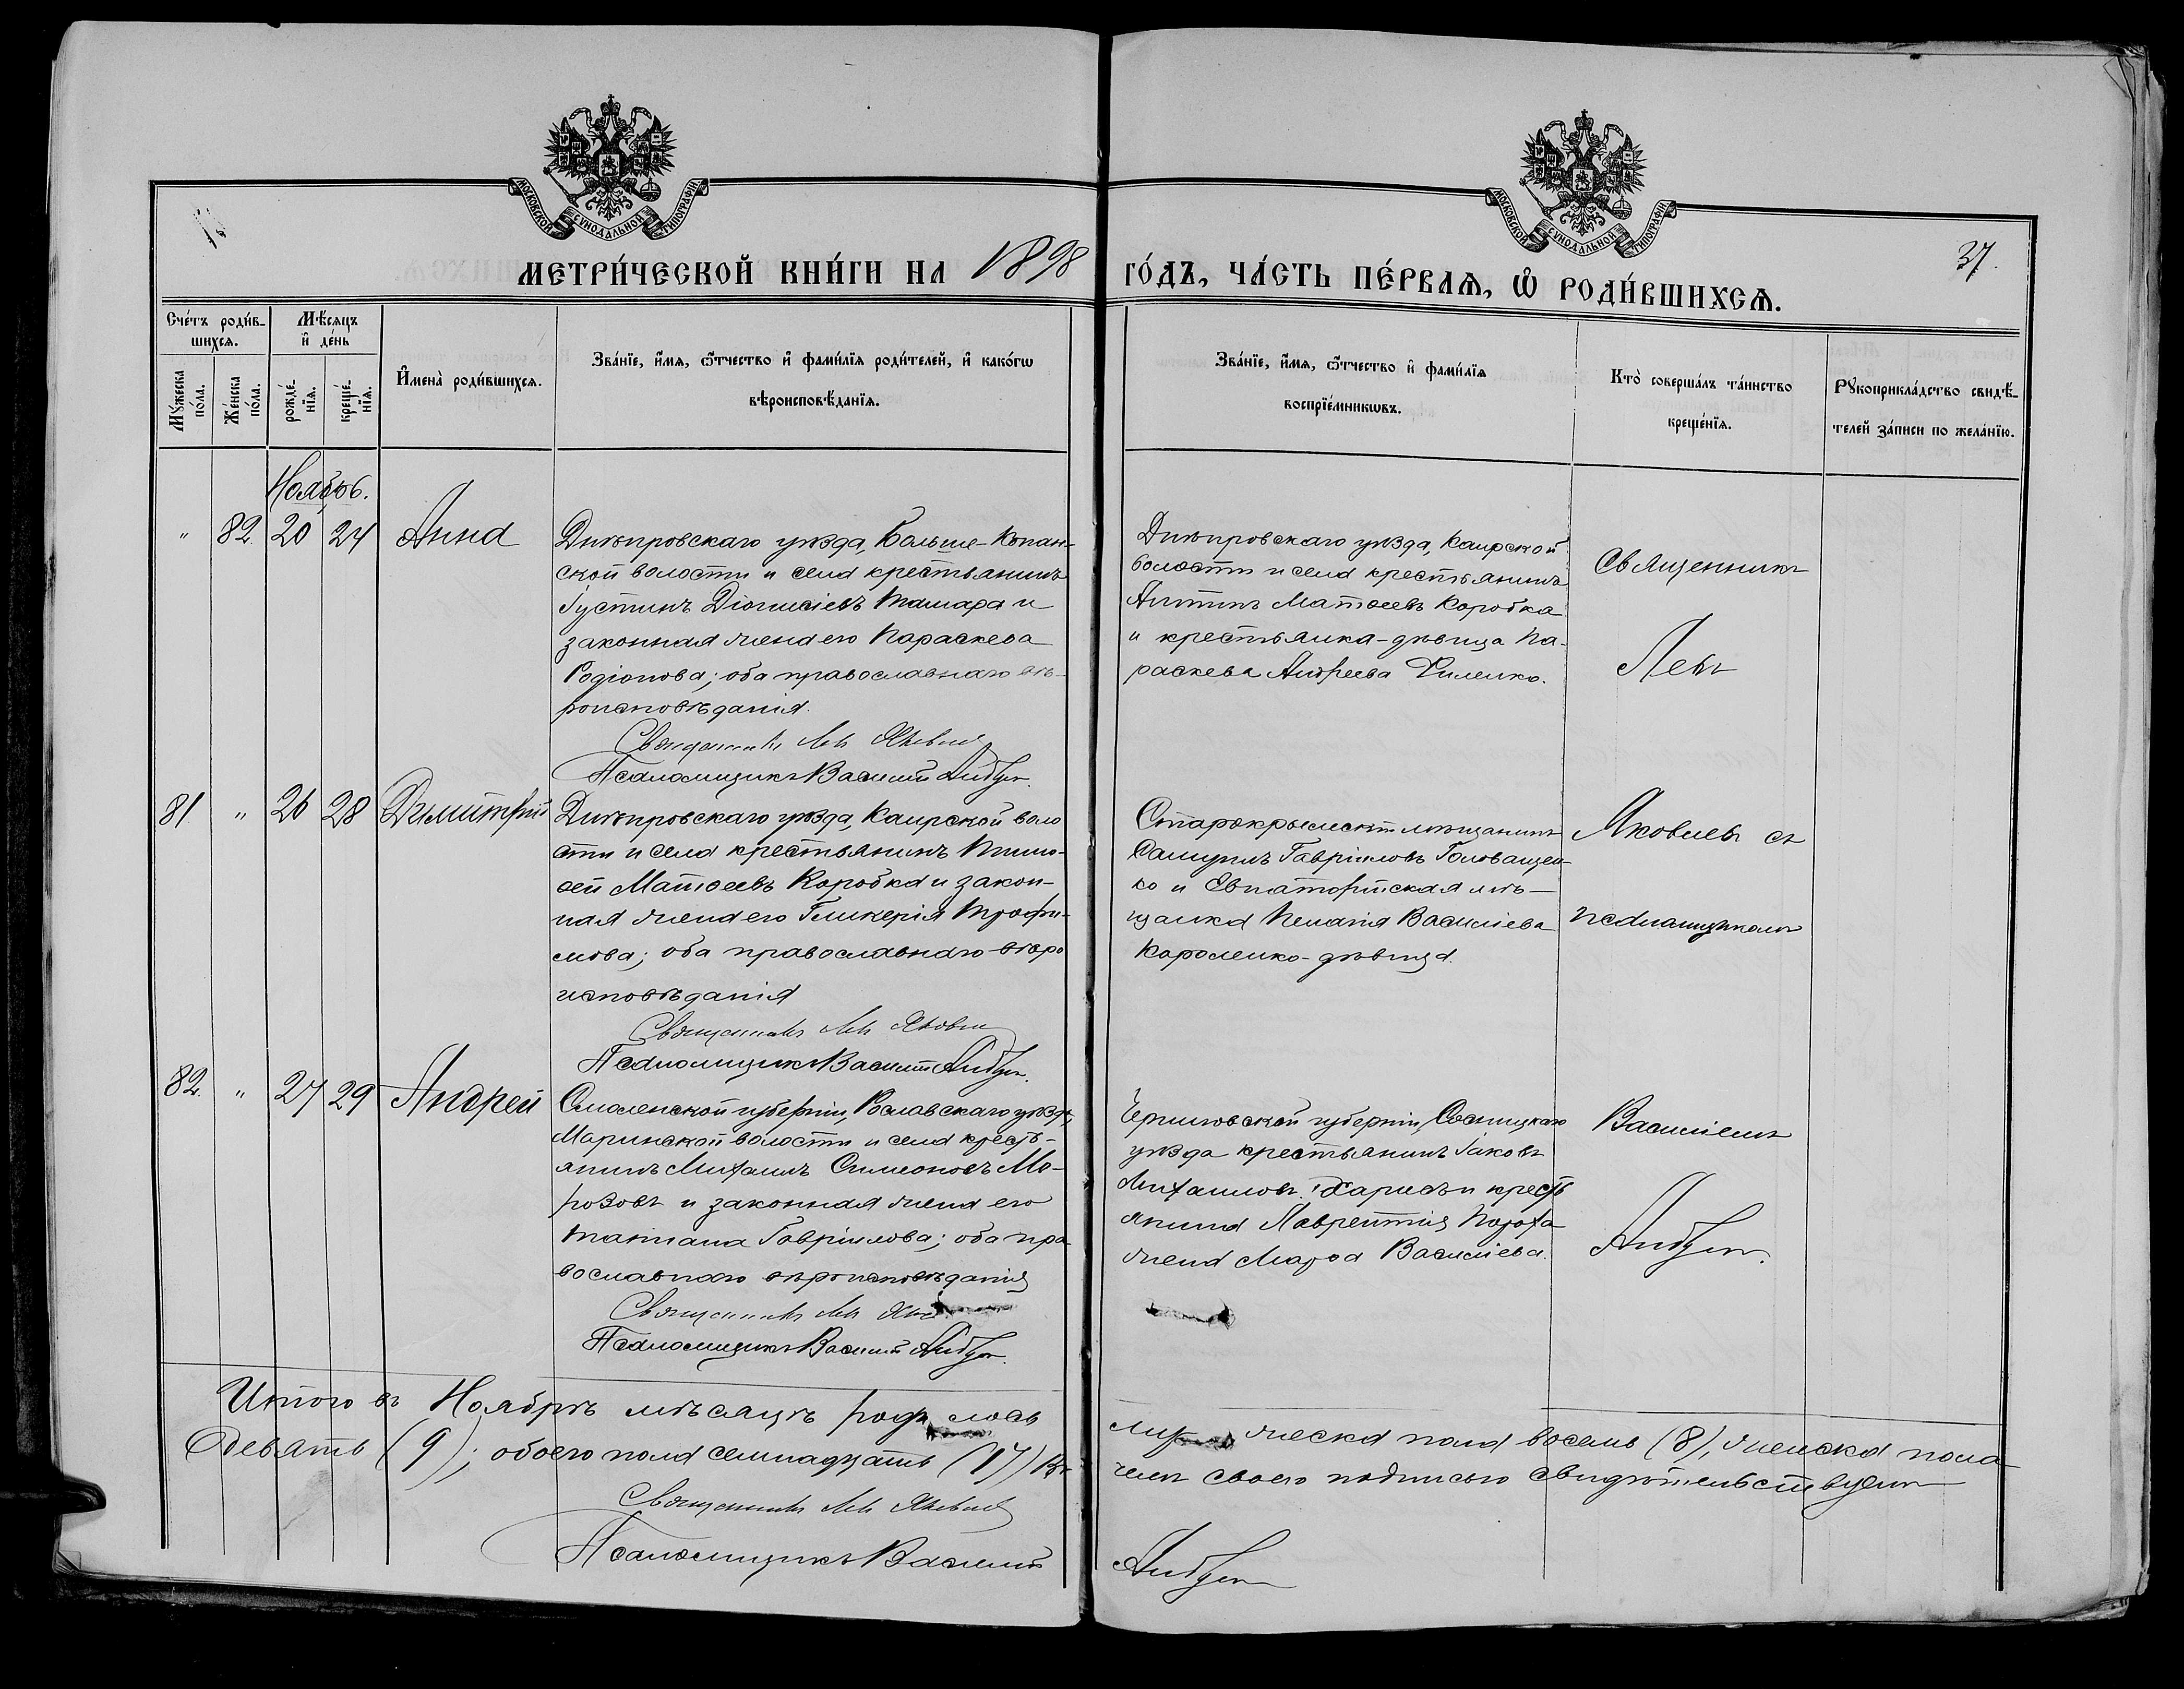 МОСКОВСКОЙ СУНОДАЛЬНОЙ ТИПОГРАФІИ
МОСКОВСКОЙ СУНОДАЛЬНОЙ ТИПОГРАФІИ
МЕТРИ́ЧЕСКОЙ КНИ́ГИ НА 1898 ГО́ДЪ, ЧА́СТЬ ПЕ́РВАѦ, Ѡ РОДИ́ВШИХСѦ.
37.
Сче́тъ роди́в-
шихсѧ.
Мꙋ́жеска по́ла.
Же́нска по́ла.
Мѣ́сѧцъ
и҆ де́нь
рожде́-
нїѧ.
креще́-
нїѧ.
И҆мена̀ роди́вшихсѧ.
Зва́нїе, и҆́мѧ, ѻ҆́тчество и҆ фами́лїѧ роди́телей, и҆ како́гѡ
вѣроисповѣ́данїѧ.
Зва́нїе, и҆́мѧ, ѻ҆́тчество и҆ фами́лїѧ
воспрїе́мникѡвъ.
Кто̀ соверша́лъ та́инство
креще́нїѧ.
Рꙋкоприкла́дство свидѣ́-
телей за́писи по жела́нїю.
Ноябрь.
" 82. 20 24 Анна
Днѣпровскаго уѣзда, Больше-Копан-
ской волости и села крестьянинъ
Іустинъ Діонисіевъ Тамара и
законная жена его Параскева
Родіонова; оба православнаго вѣ-
роисповѣданія.
Священникъ Левъ Яковлев
Псаломщикъ Василій
Днѣпровскаго уѣзда, Каирской
волости и села крестьянинъ
Антипъ Матѳеевъ Коробка
и крестьянка-дѣвица Па-
раскева Андреева Филенко.
Священникъ
Левъ
81. " 26 28 Димитрій
Днѣпровскаго уѣзда, Каирской воло
сти и села крестьянинъ Тимо-
ѳей Матѳеевъ Коробка и закон-
ная жена его Гликерія Трофи-
мова; оба православнаго вѣро
исповѣданія
Священникъ Левъ Яковлев
Псаломщикъ Василій
Старокрымскій мѣщанинъ
Самуилъ Гавріиловъ Головащен-
ко и Евпаторійская мѣ-
щанка Пелагія Василіева
Короленко-дѣвица.
Яковлевъ съ
псаломщикомъ
82. " 27 29 Андрей
Смоленской губерніи, Рославскаго уѣзда,
Маринской волости и села кресть-
янинъ Михаилъ Симеоновъ Мо-
розовъ и законная жена его
Татіана Гавріилова; оба пра
вославнаго вѣроисповѣданія
Священникъ Левъ
Псаломщикъ Василій
Черниговской губерніи, Сосницкаго
уѣзда крестьянинъ Іаковъ
Михаиловъ и кресть
янина Лаврентія
жена Марѳа Василіева.
Василіемъ
Итого въ Ноябрѣ мѣсяцѣ родилось мужеска пола восемь (8), женска пола
девять (9); обоего пола семнадцать (17) Въ чемъ своею подписью свидѣтельствуемъ
Священникъ Левъ Яковлев
Псаломщикъ Василій